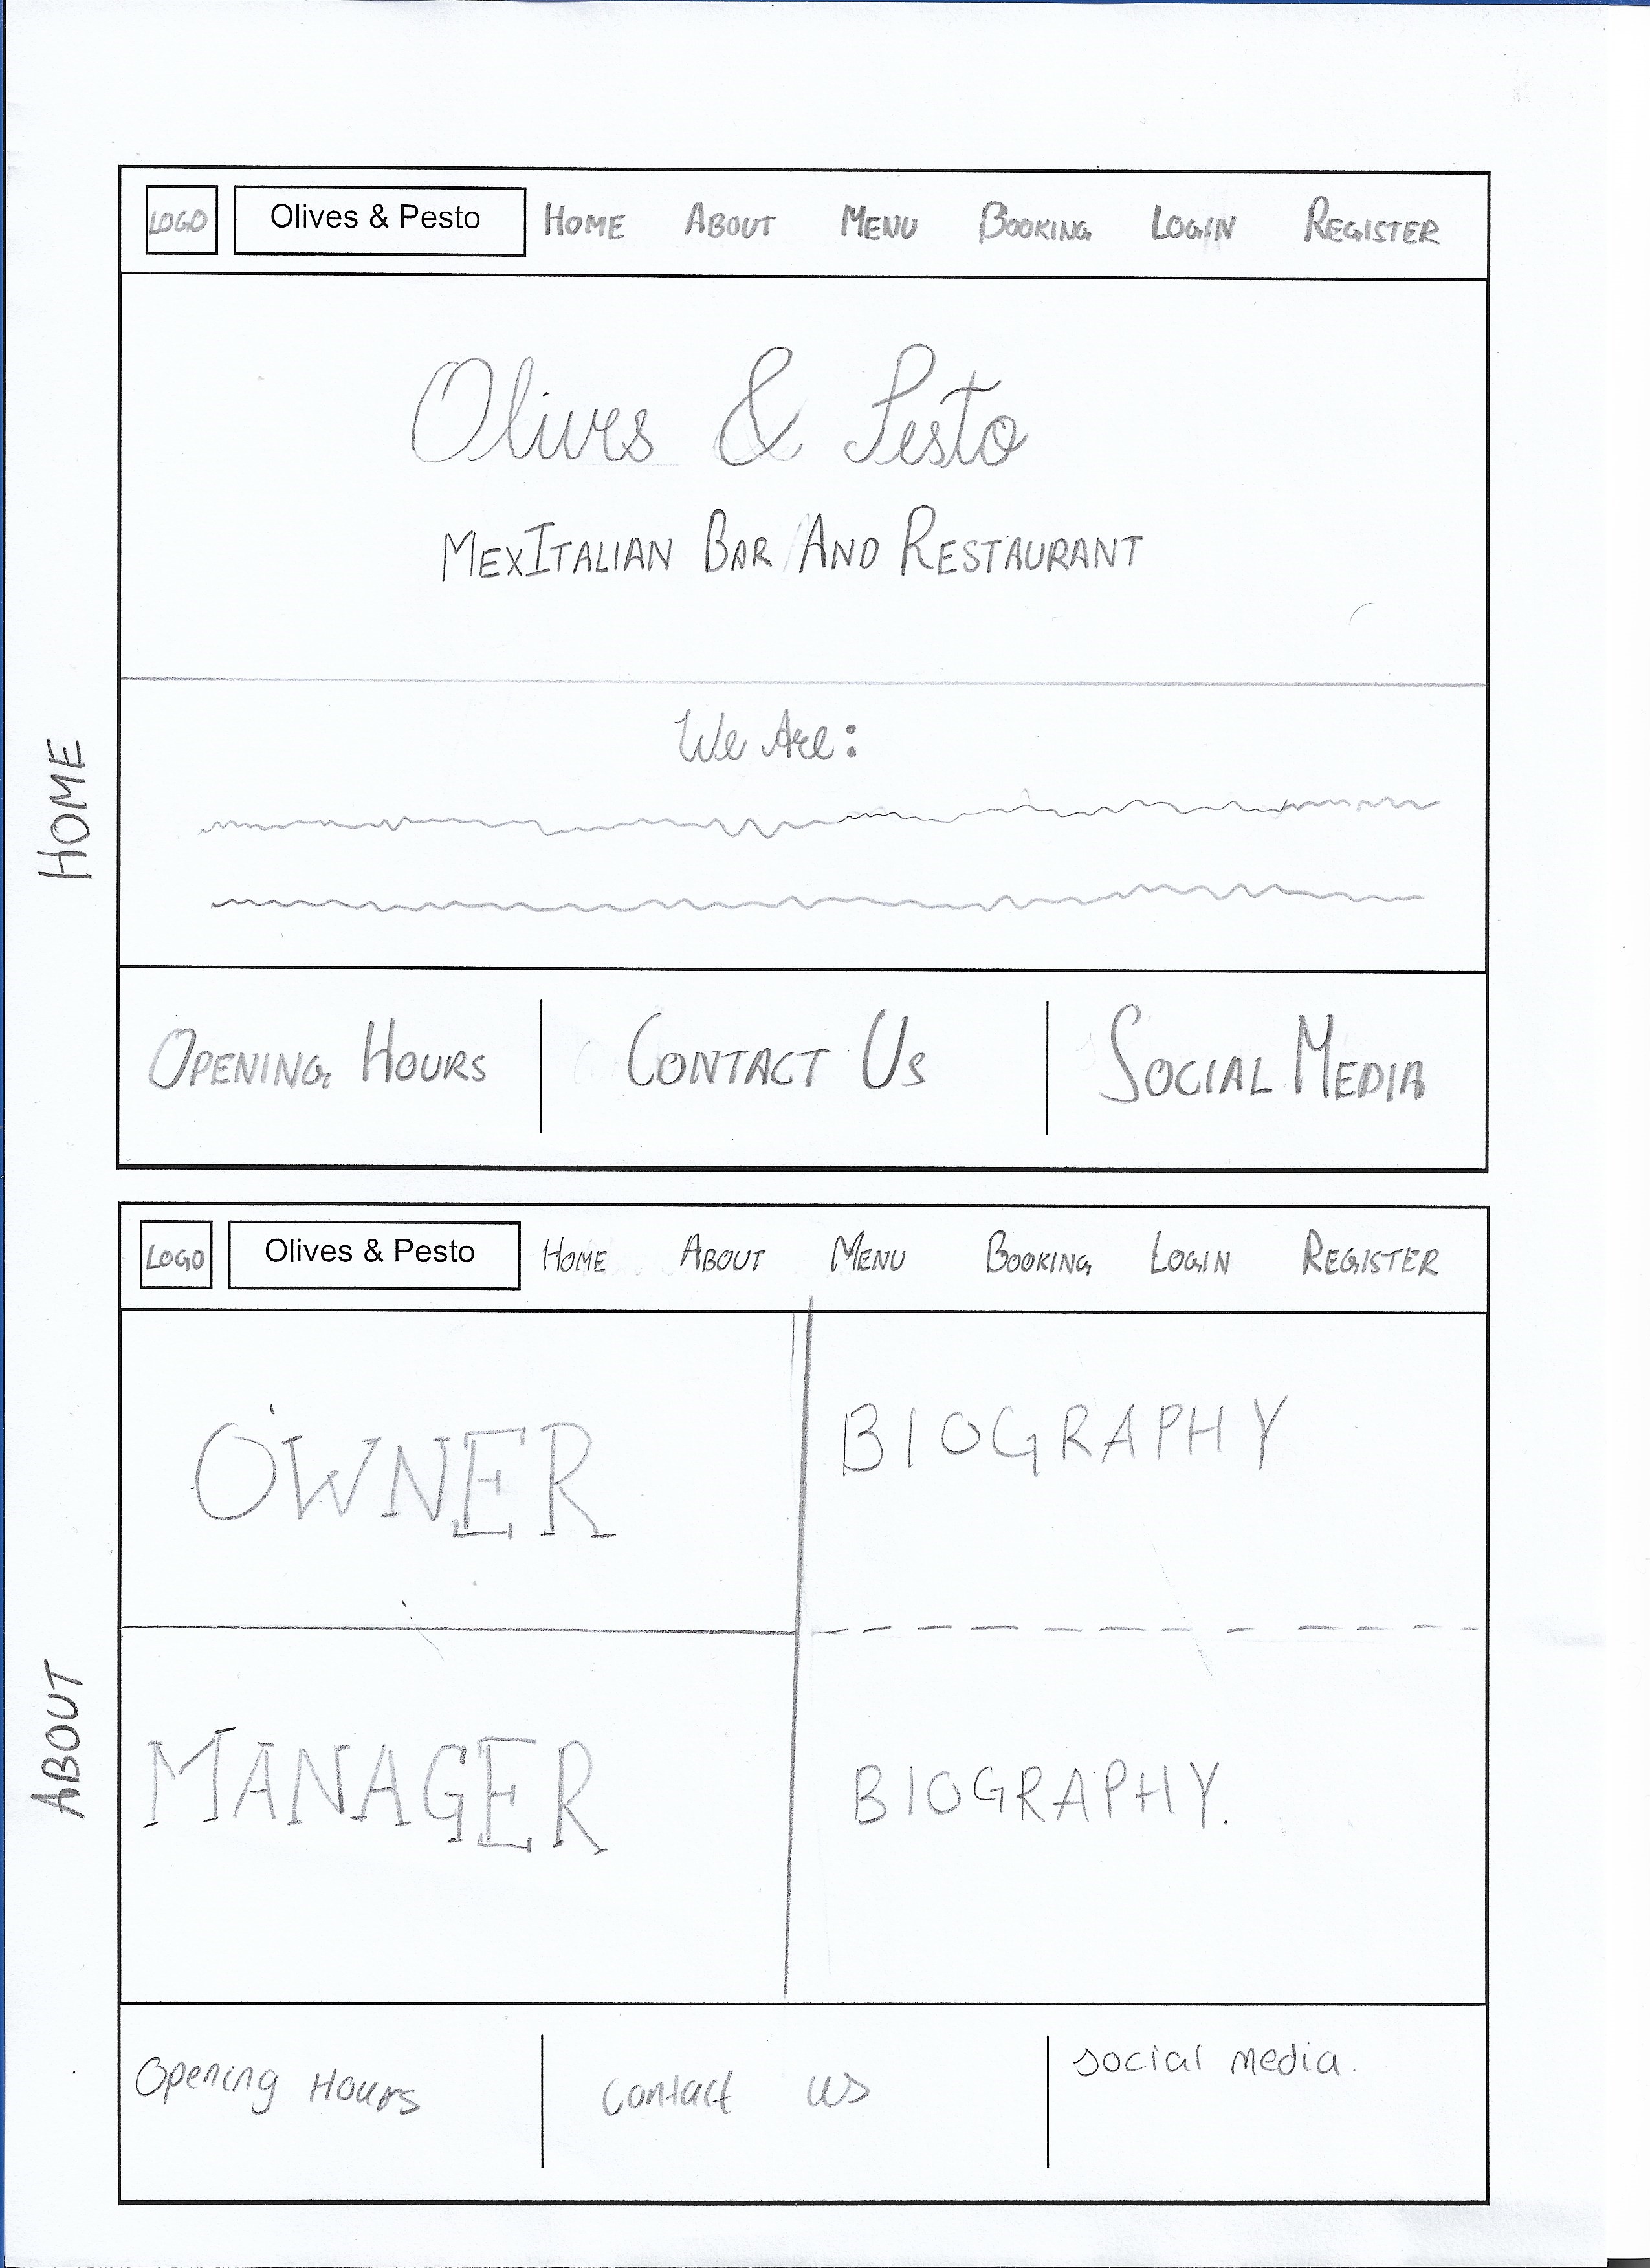 LOGO Olives & Pesto HOME ABOUT MENU BOOKING LOGIN REGISTER
Olives & Pesto
MEXITALIAN BAR AND RESTAURANT
We Are:
HOME
OPENING HOURS CONTACT US SOCIAL MEDIA
LOGO Olives & Pesto HOME ABOUT MENU BOOKING LOGIN REGISTER
OWNER BIOGRAPHY
ABOUT
MANAGER BIOGRAPHY.
Opening Hours contact us social media.